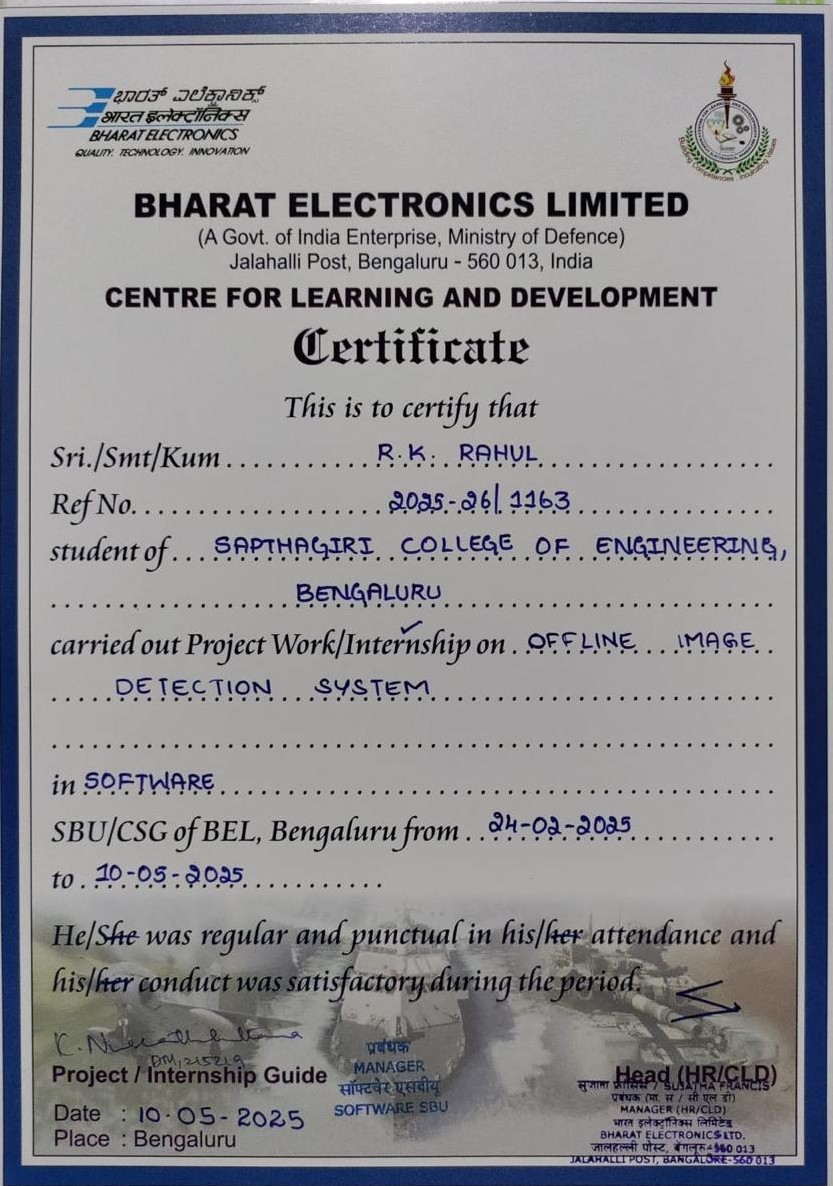 ಭಾರತ್ ಎಲೆಕ್ಟ್ರಾನಿಕ್ಸ್
भारत इलेक्ट्रॉनिक्स
BHARAT ELECTRONICS
QUALITY. TECHNOLOGY. INNOVATION
Building Competencies - Inculcating Values
BHARAT ELECTRONICS LIMITED
(A Govt. of India Enterprise, Ministry of Defence)
Jalahalli Post, Bengaluru - 560 013, India
CENTRE FOR LEARNING AND DEVELOPMENT
Certificate
This is to certify that
Sri./Smt/Kum R.K. RAHUL
Ref No. 2025-26/1163
student of SAPTHAGIRI COLLEGE OF ENGINEERING,
BENGALURU
carried out Project Work/Internship on OFFLINE IMAGE
DETECTION SYSTEM
in SOFTWARE
SBU/CSG of BEL, Bengaluru from 24-02-2025
to 10-05-2025
He/She was regular and punctual in his/her attendance and
his/her conduct was satisfactory during the period.
DM, 215219
Project / Internship Guide
Date : 10.05-2025
Place : Bengaluru
प्रबंधक
MANAGER
सॉफ्टवेर एसबीयू
SOFTWARE SBU
Head (HR/CLD)
सुजाता फ्रांसिस / SUJATHA FRANCIS
प्रबंधक (मा. सं / सी एल डी)
MANAGER (HR/CLD)
भारत इलेक्ट्रॉनिक्स लिमिटेड
BHARAT ELECTRONICS LTD.
जालहल्ली पोस्ट, बेंगलूरु-560 013
JALAHALLI POST, BANGALORE-560 013